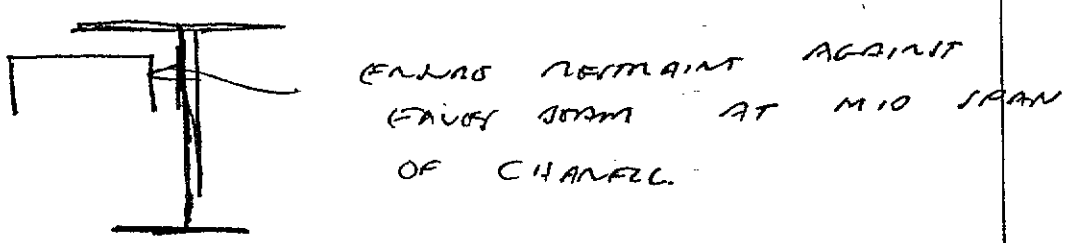 ENSURE RESTRAINT AGAINST
EAVES BEAM AT MID SPAN
OF CHANELL.